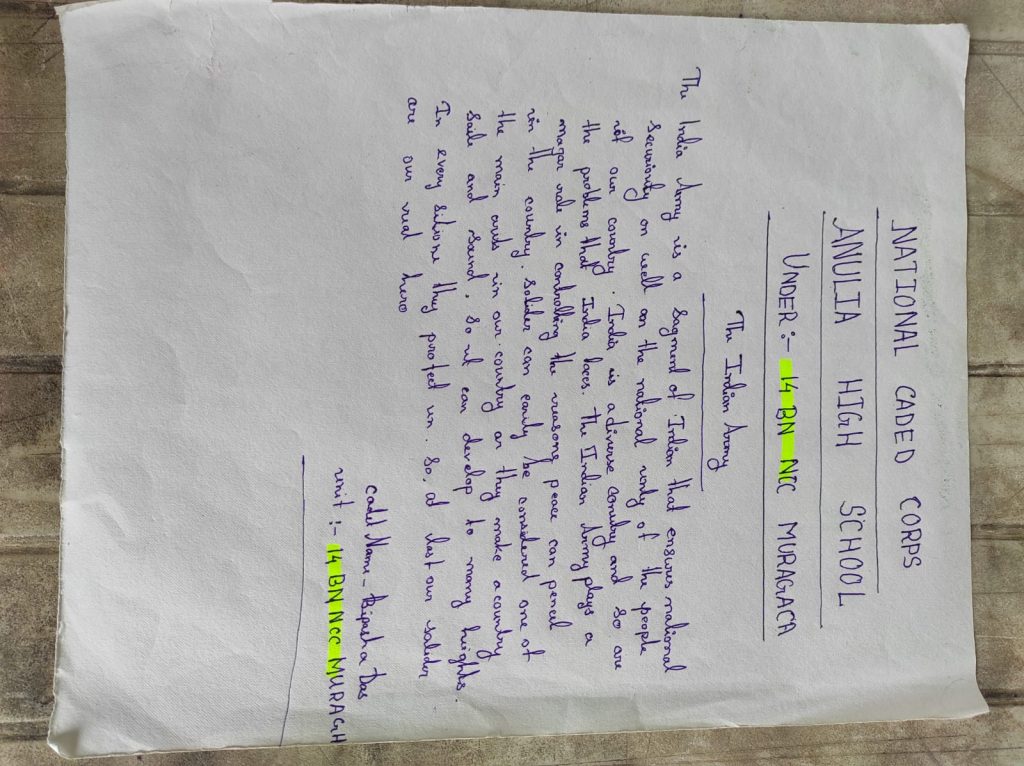 NATIONAL CADED CORPS
ANULIA HIGH SCHOOL
UNDER :- 14 BN NCC MURAGACA
The Indian Army
The India Army is a Sagment of Indian that ensures national
securiouty on well on the national unity of the people
of our country. India is a diverse conutry and so are
the problems that India faces. the Indian Army plays a
magar role in controlling the reasong peace can pencil
in the country. Solider can easily be considered one of
the main in our country as they make a country
safe and sound. So we can develop to many heights.
In every they protect us. So, at last our solider
are our real hero
cadet Name - Das
unit :- 14 BN NCC MURAGH